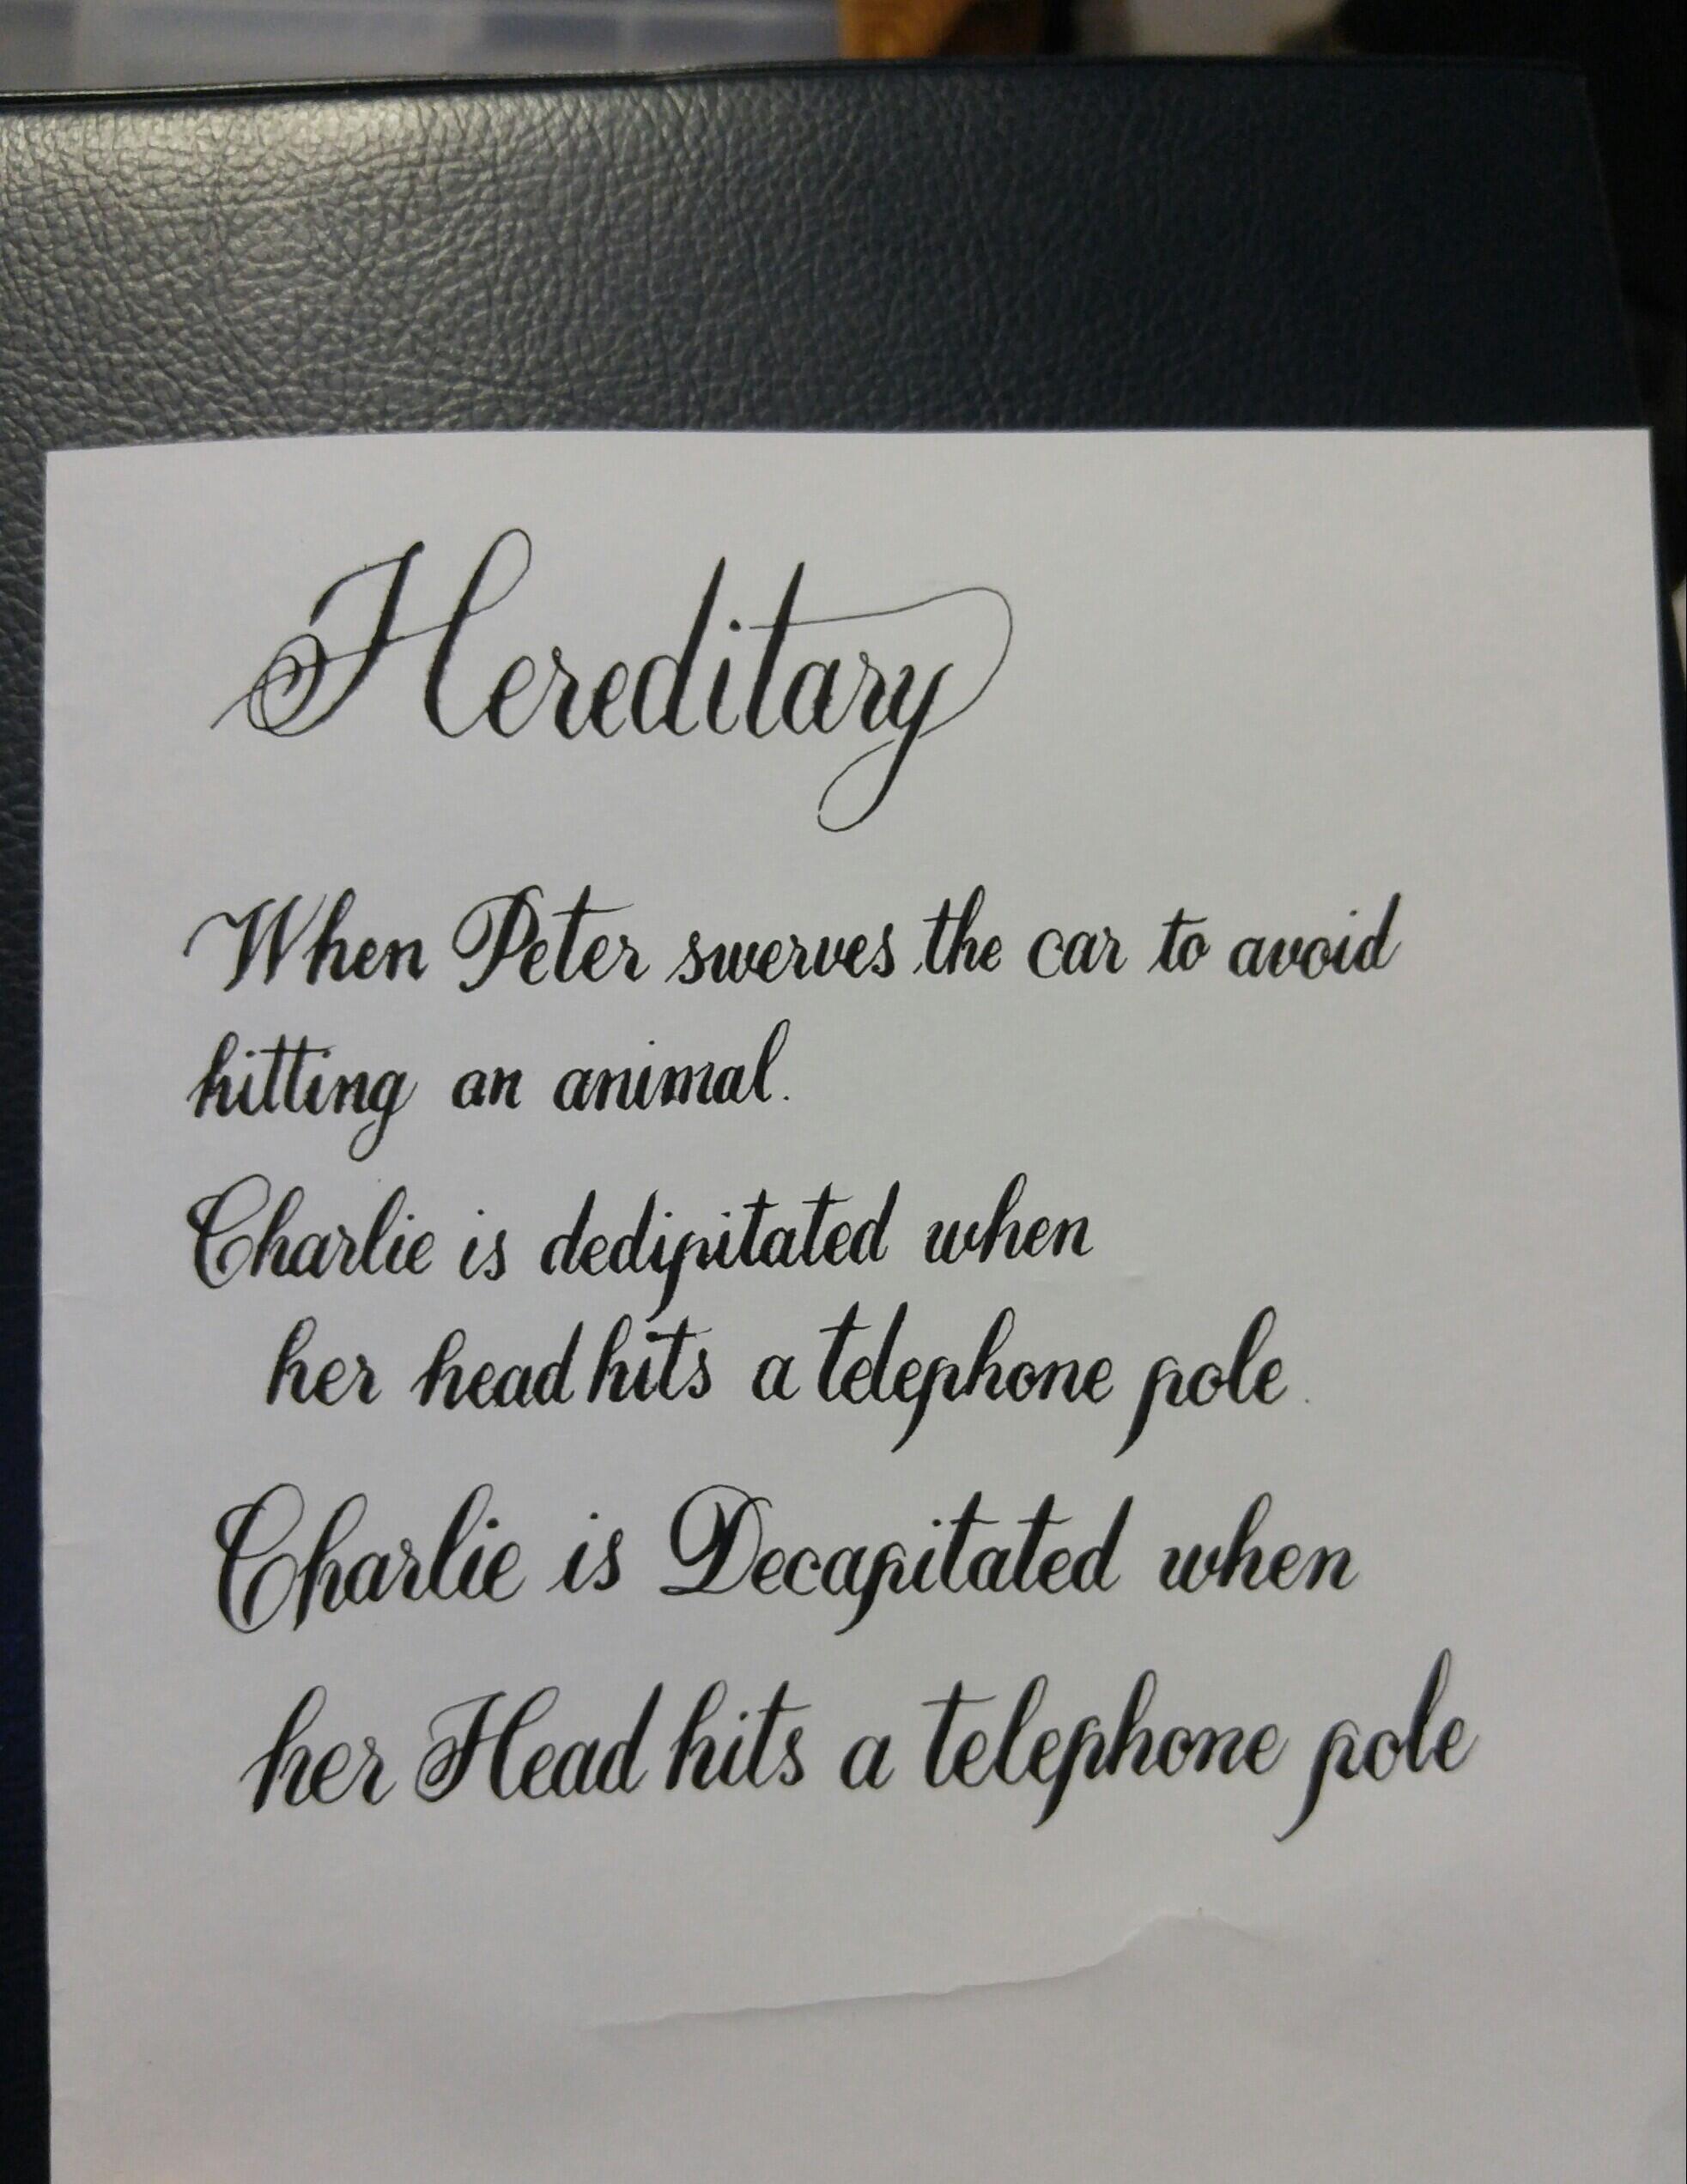 Hereditary
When Peter swerves the car to avoid
hitting an animal.
Charlie is dedipitated when
her head hits a telephone pole.
Charlie is Decapitated when
her Head hits a telephone pole